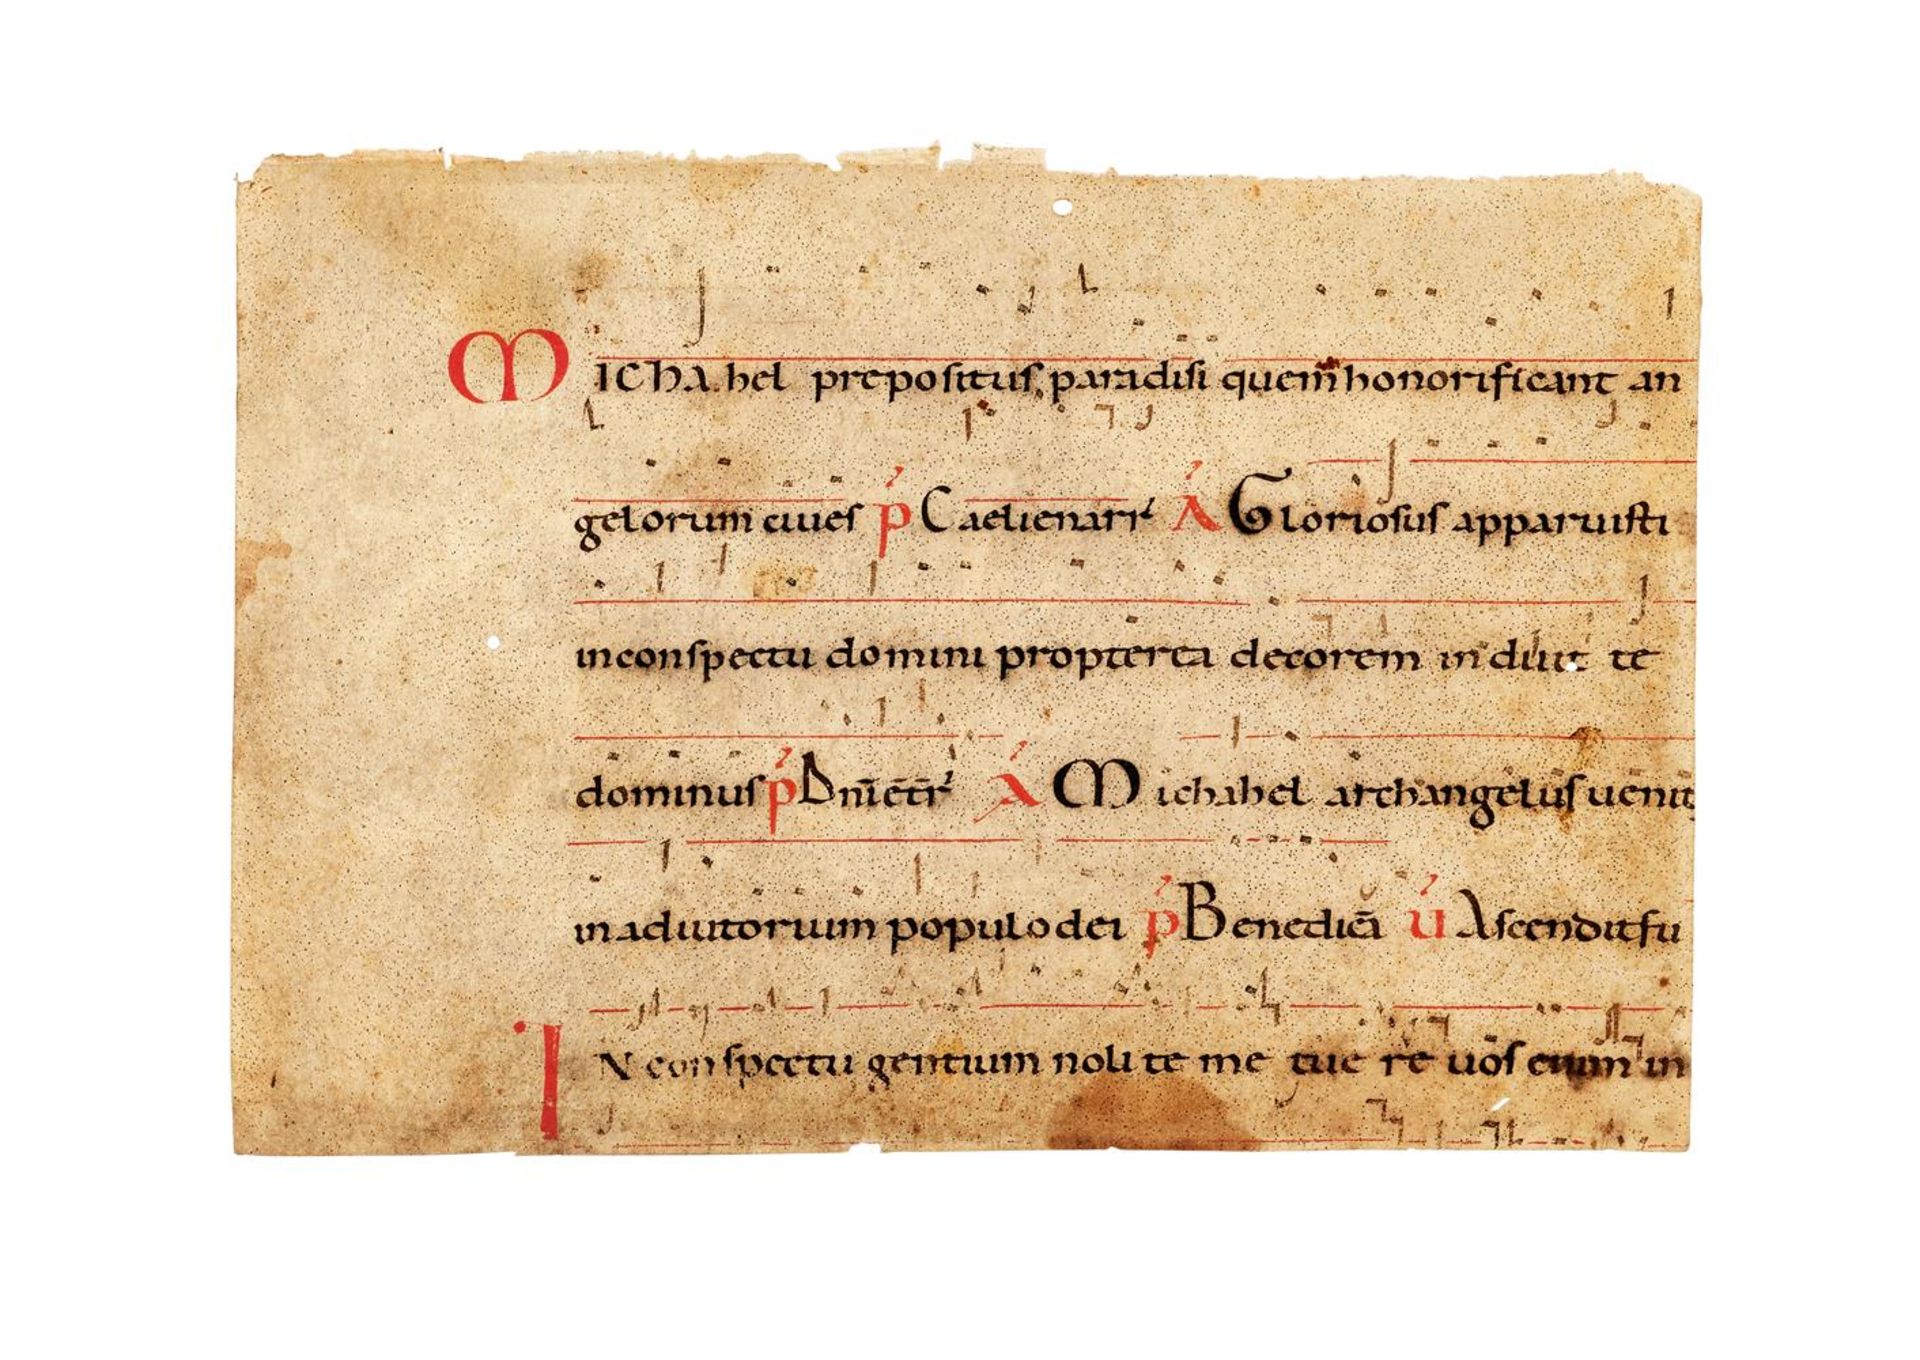 Michahel prepositus paradisi quem honorificant an
gelorum ciues p̃ Caelienarr̃ Ã Gloriosus apparuisti
in conspectu domini propterea decorem induit te
dominus p̃ Dnietr̃ Ã Michahel archangelus uenit
in adiutorium populo dei p̃ Benedicã ũ Ascendit fu
IN conspectu gentium nolite me tuere uos enim in